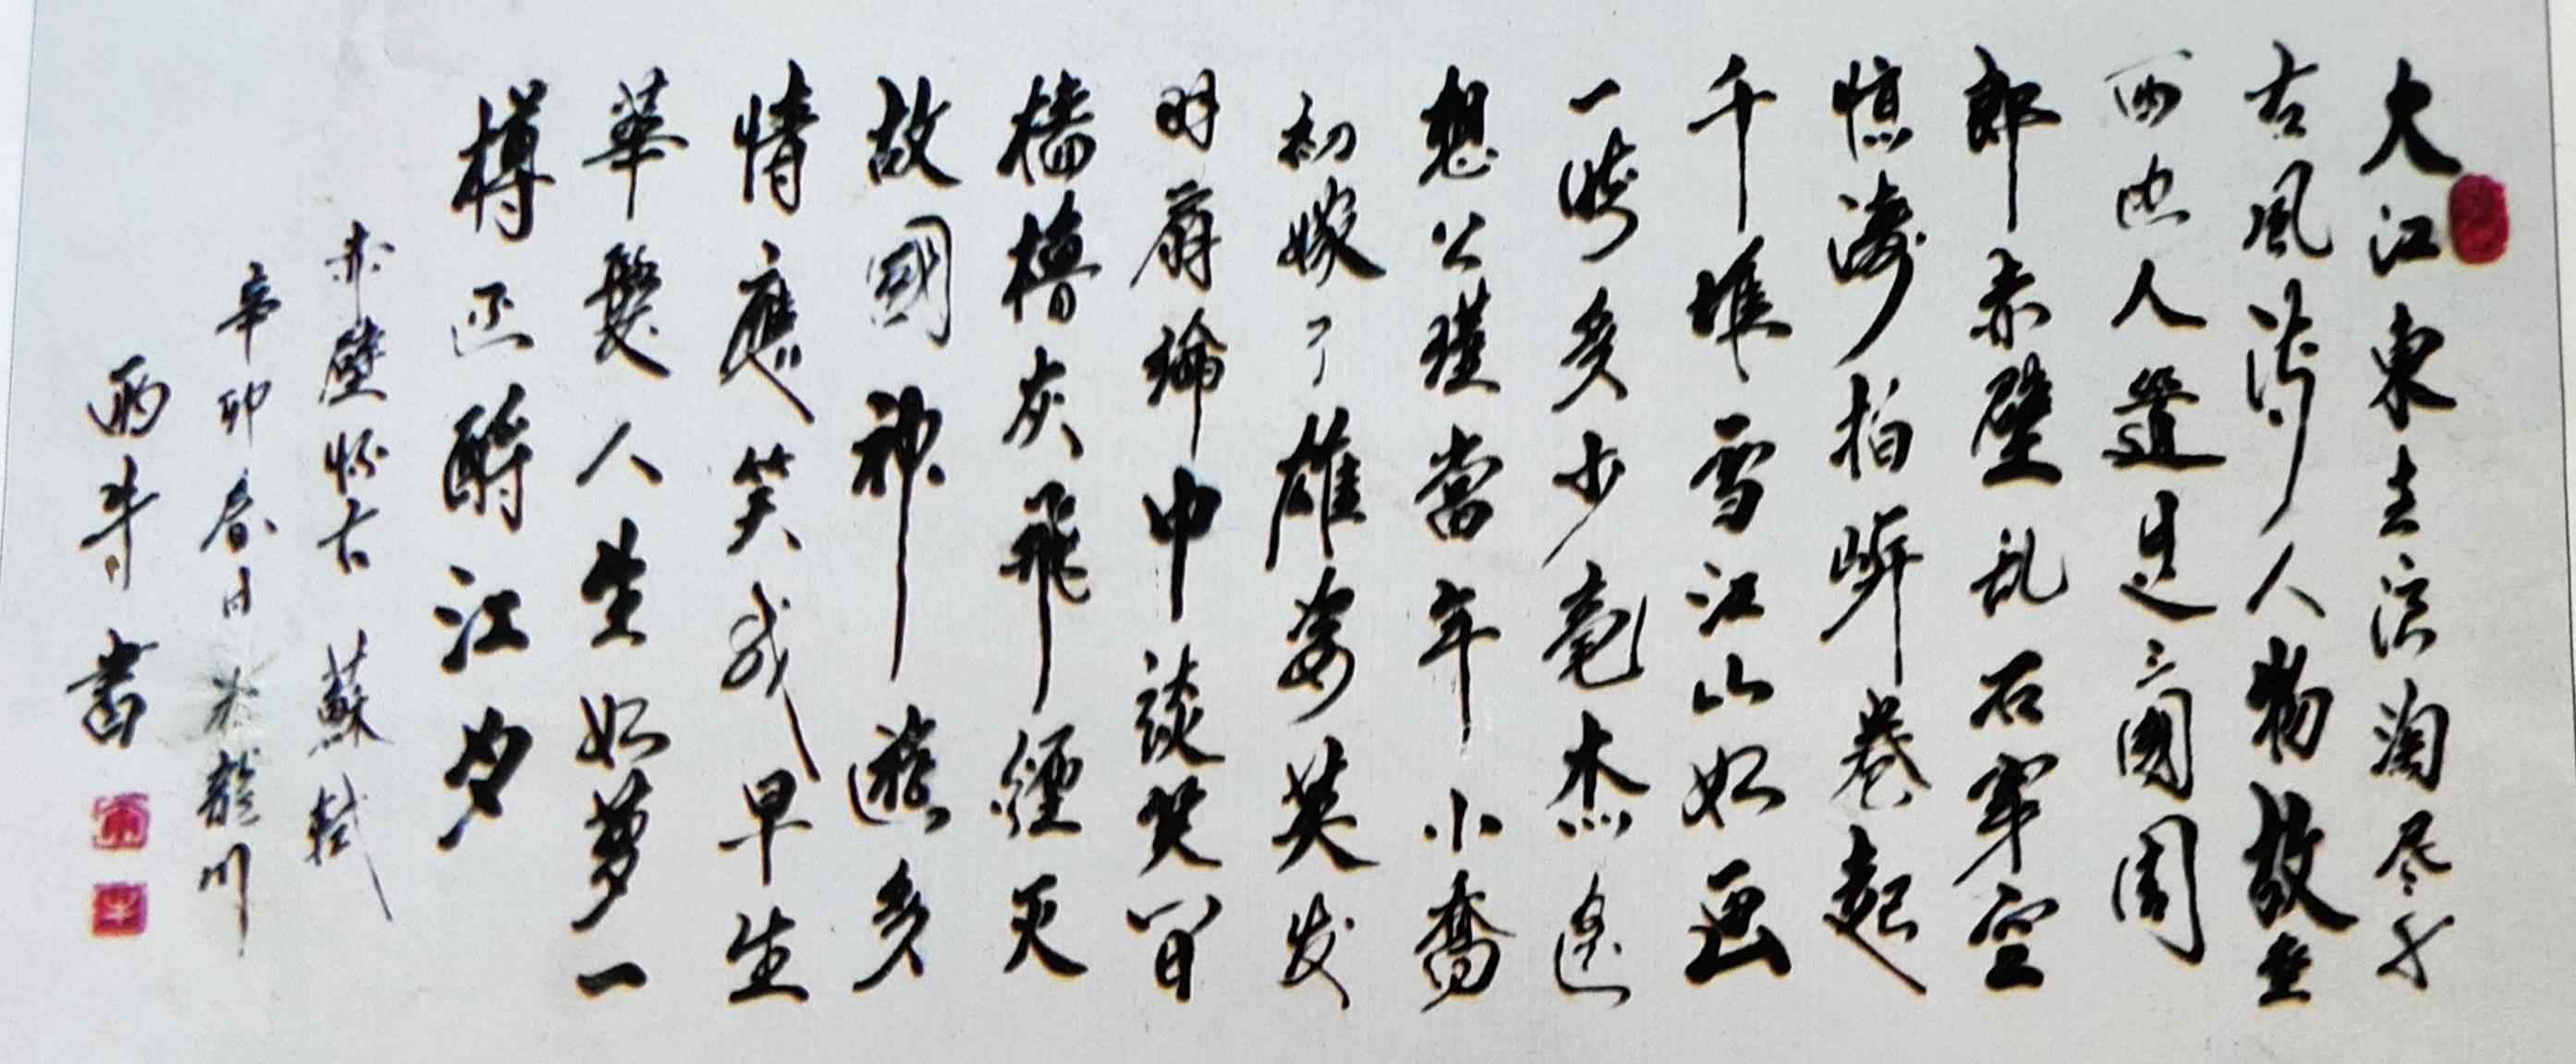 大江東去浪淘尽千
古風流人物故垒
西边人道是三國周
郎赤壁乱石穿空
惊濤拍岸卷起
千堆雪江山如画
一時多少豪杰遥
想公瑾當年小喬
初嫁了雄姿英发
羽扇綸巾談笑间
檣櫓灰飛煙灭
故國神遊多
情應笑我早生
華髮人生如夢一
樽还酹江月
赤壁怀古 蘇軾
辛卯春日 於龍川
雨牛書